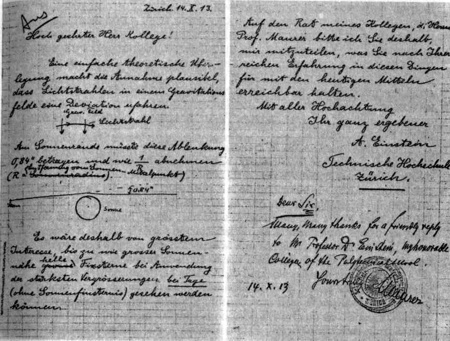 Zürich. 14. X. 13.
Hoch geehrter Herr Kollege!
Eine einfache theoretische Über-
legung macht die Annahme plausibel,
dass Lichtstrahlen in einem Gravitations-
felde eine Deviation erfahren.
Grav. Feld
Lichtstrahl
Am Sonnenrande müsste diese Ablenkung
0,84" betragen und wie 1/R abnehmen
(R = Sonnenmittelpunkt)
0,84"
Sonne
Es wäre deshalb von grösstem
Interesse, bis zu wie grosser Sonnen-
nähe helle Fixsterne bei Anwendung
der stärksten Vergrösserungen bei Tage
(ohne Sonnenfinsternis) gesehen werden
können.
Auf den Rat meines Kollegen, d. Herrn
Prof. Maurer bitte ich Sie deshalb,
mir mitzuteilen, was Sie nach Ihrer
reichen Erfahrung in diesen Dingen
für mit den heutigen Mitteln
erreichbar halten.
Mit aller Hochachtung
Ihr ganz ergebener
A. Einstein
Technische Hochschule
Zürich.
Dear Sir,
Many, Many thanks for a friendly reply
to Mr Professor Dr Einstein, my honorable
Collegue of the Polytechnical School
14. X. 13 Yours truly
Maurer